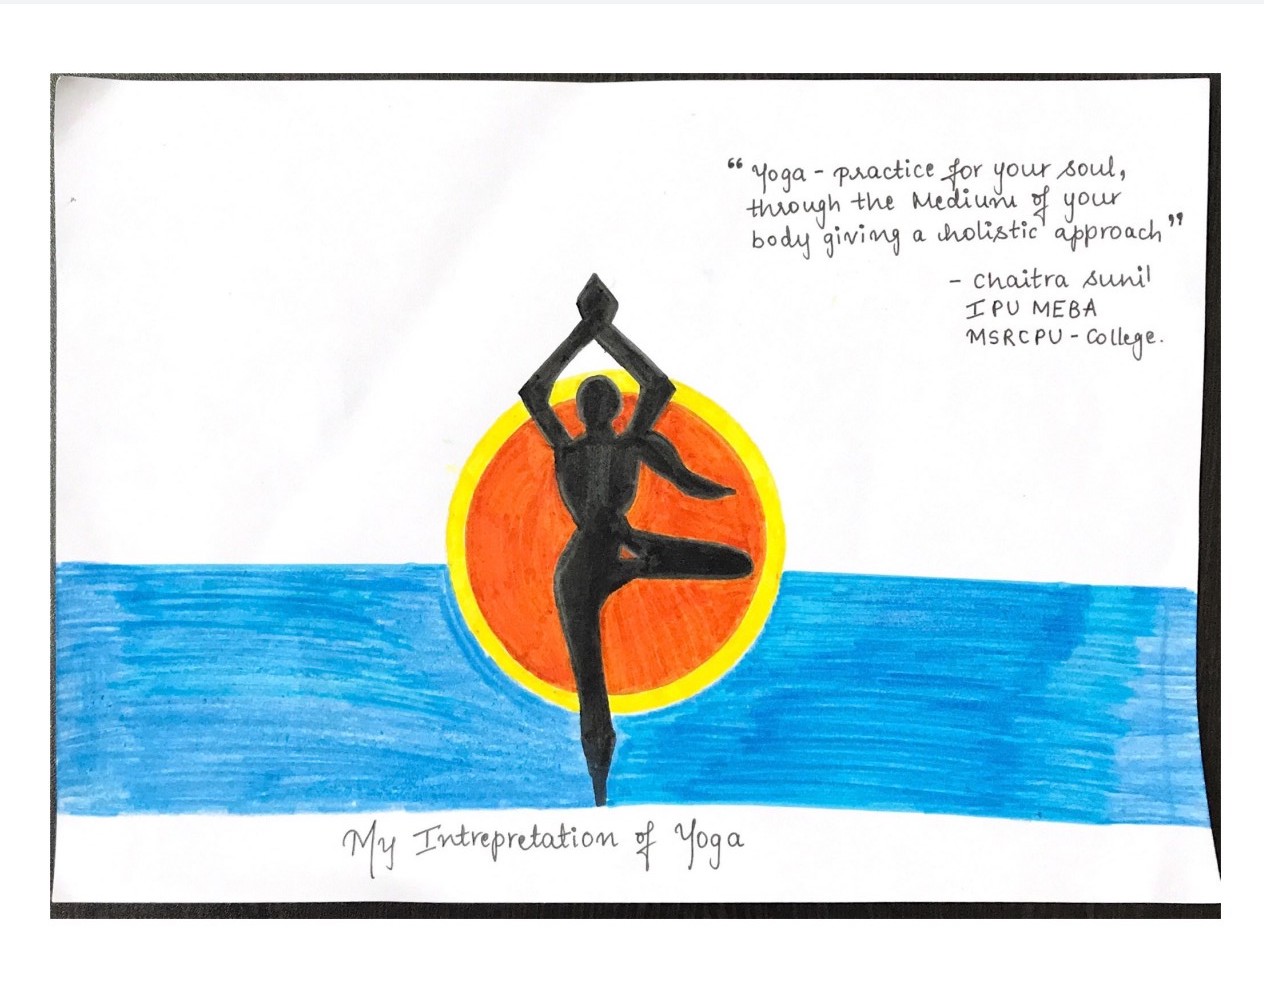 “ Yoga - practice for your soul,
through the Medium of your
body giving a holistic approach”
- Chaitra Sunil
I PU MEBA
MSRCPU - College.
My Intrepretation of Yoga